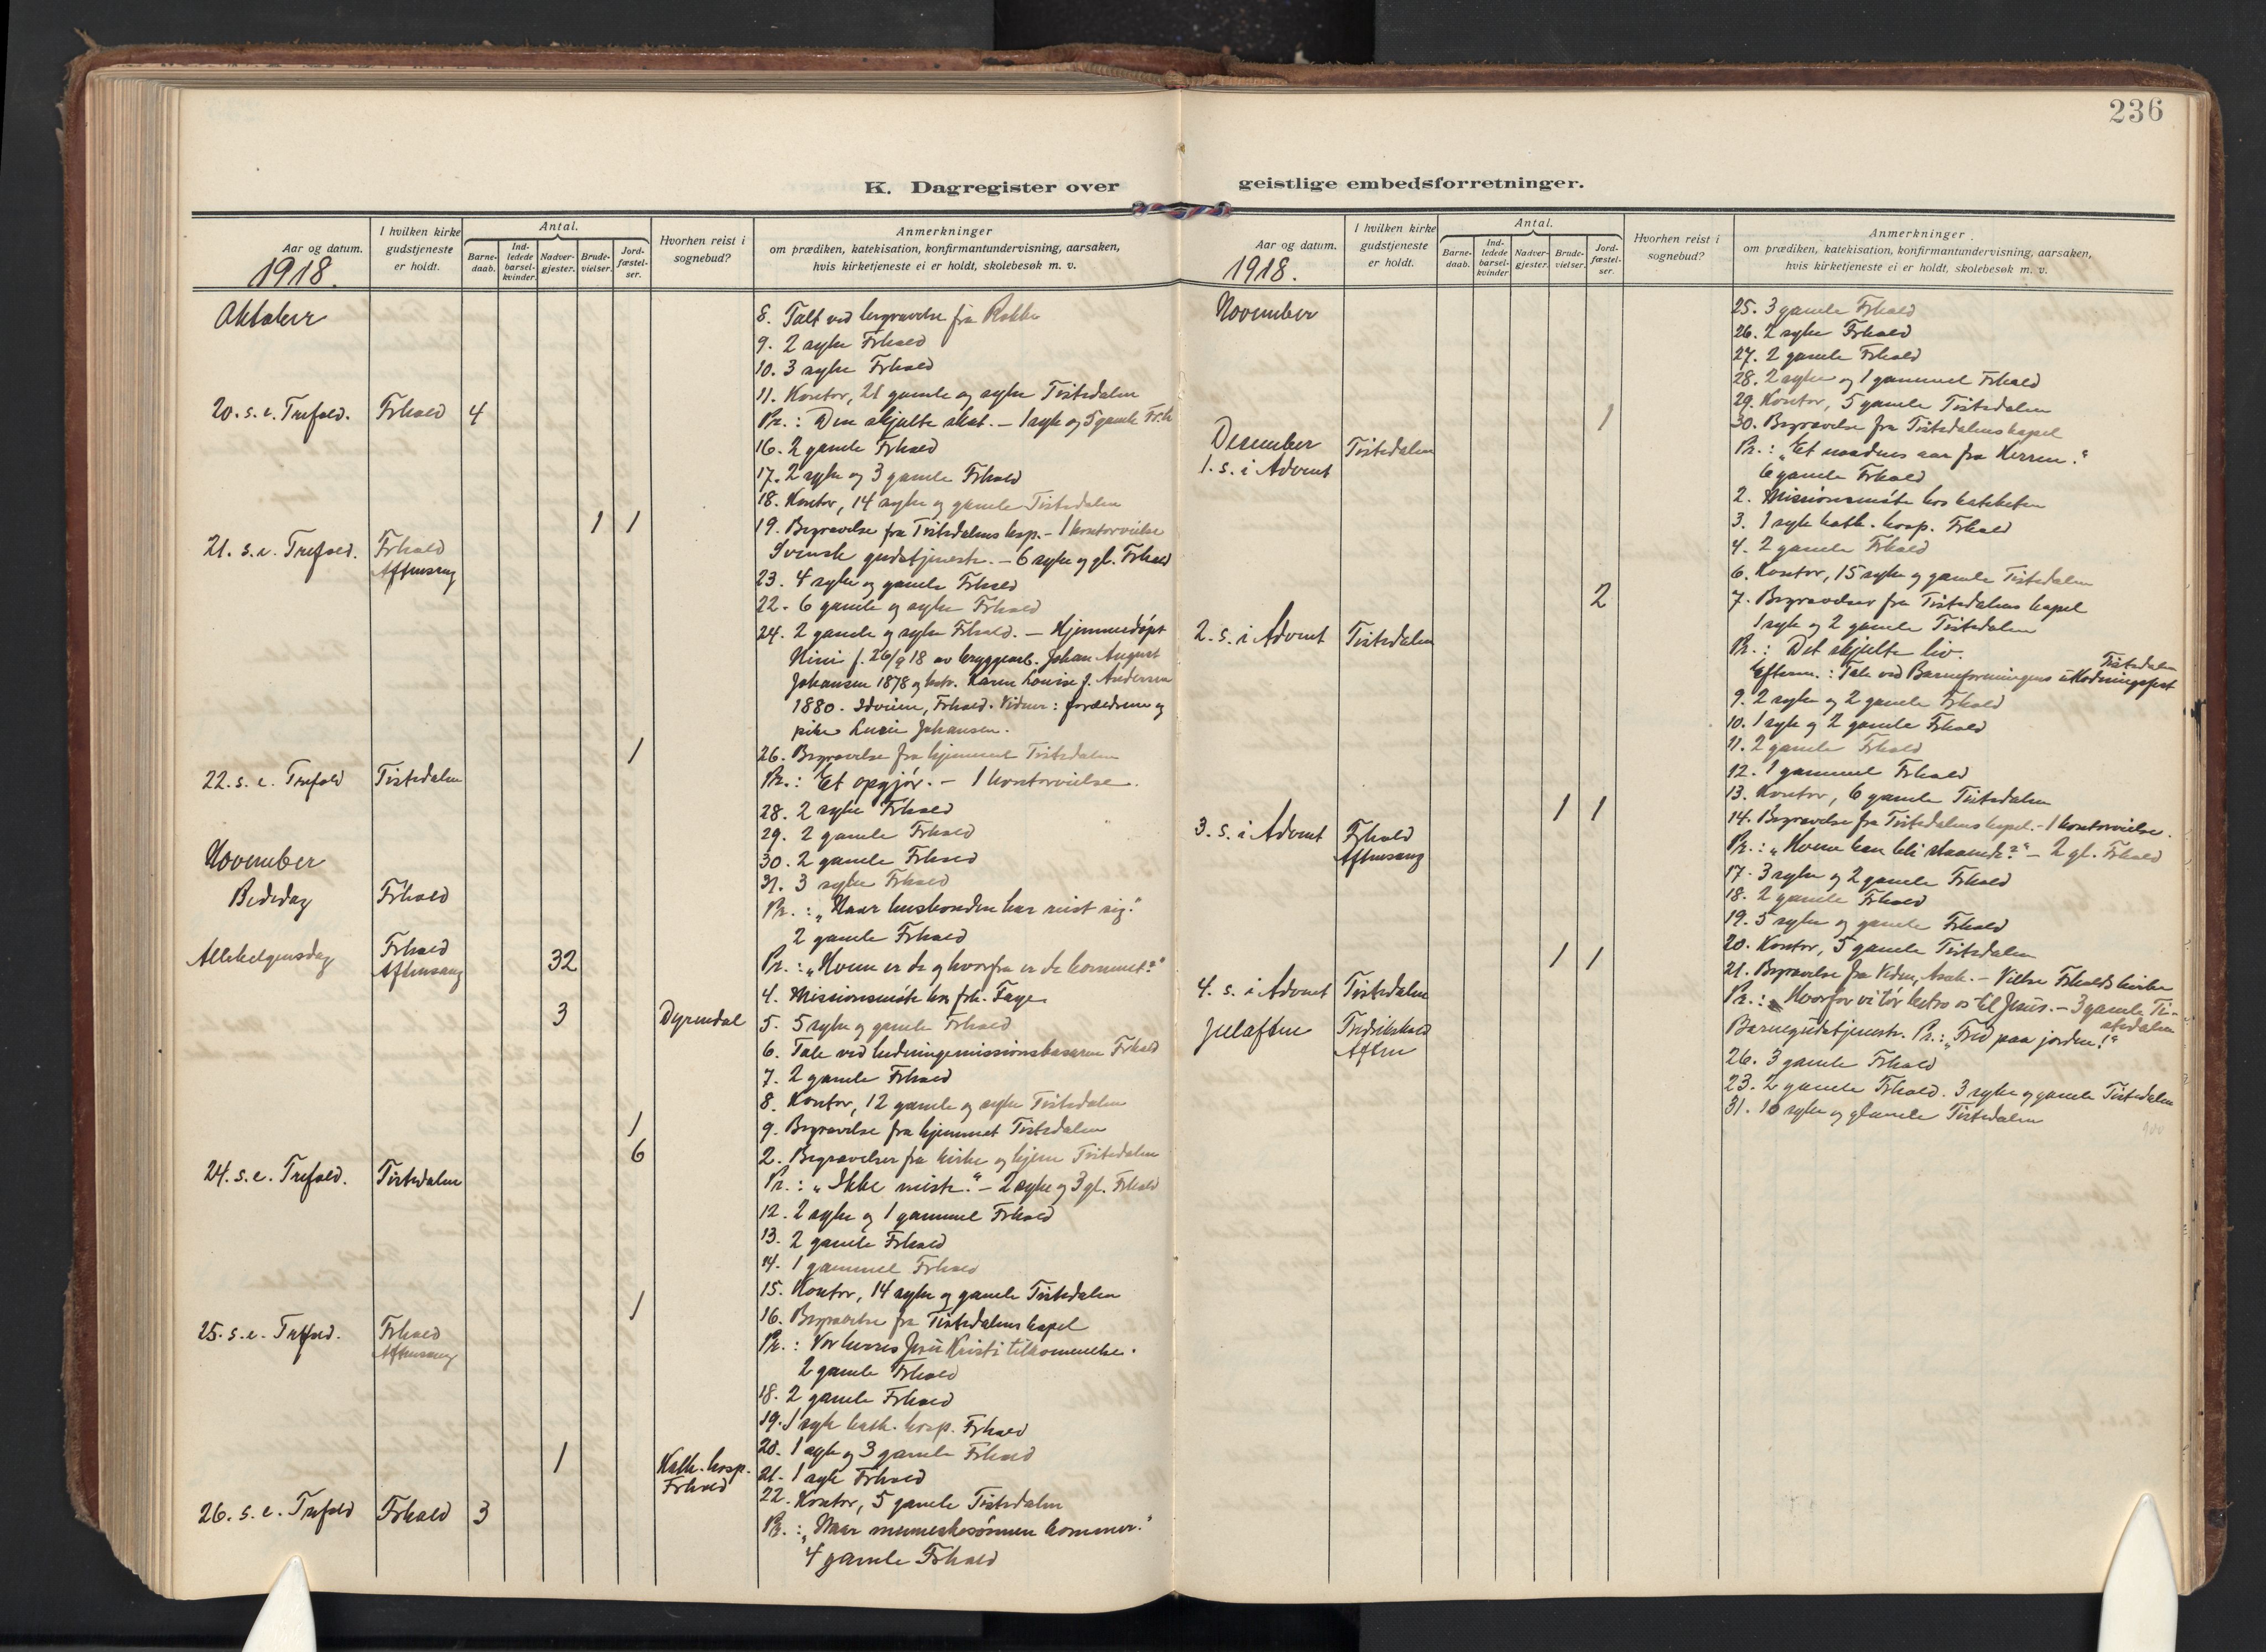 236
K. Dagregister over geistlige embedsforretninger.
Aar og datum.
1918.
I hvilken kirke gudstjeneste er holdt.
Antal.
Barne-daab.
Ind-ledede barsel-kvinder
Nadver-gjester.
Brude-vielser.
Jord-fæstel-ser.
Hvorhen reist i sognebud?
Anmerkninger
om prædiken, katekisation, konfirmantundervisning, aarsaken,
hvis kirketjeneste ei er holdt, skolebesøk m. v.
Oktober
8. Talt ved begravelse fra Rokke
9. 2 syke Frhald
10. 3 syke Frhald
11. Kontor, 21 gamle og syke Tistedalen
20. s. e. Trefold. Frhald 4 Pr.: Den skjulte skat. – 1 syk og 5 gamle Fr.h
16. 2 gamle Frhald
17. 2 syke og 3 gamle Frhald
18. Kontor, 14 syke og gamle Tistedalen
1 1 19. Begravelse fra Tistedalens kap. – 1 kontorvielse
21. s. e. Trefold. Frhald Aftensang Svensk gudstjeneste. – 6 syke og gl. Frhald
23. 4 syke og gamle Frhald
22. 6 gamle og syke Frhald
24. 2 gamle og syke Frhald. – Hjemmedøpt
f. 26/9 18 av bryggearb. Johan August
Johansen 1878 og hstr. Karen Louise f. Andersen
1880. Frhald. Vidner: forældrene og
pike Johansen.
1 26. Begravelse fra hjemmet Tistedalen
22. s. e. Trefold Tistedalen Pr.: Et opgjør. – 1 kontorvielse.
28. 2 syke Frhald
29. 2 gamle Frhald
November
30. 2 gamle Frhald
31. 3 syke Frhald
Bededag Frhald Pr.: „Naar husbonden har reist sig."
2 gamle Frhald
Allehelgensdag Frhald Aftensang 32 Pr.: „Hvem er de og hvorfra er de kommet?"
4. Missionsmøte hos frk. Faye
3 Dyrendal 5. 5 syke og gamle Frhald
6. Tale ved hedningemissionsbasaren Frhald
7. 2 gamle Frhald
8. Kontor, 12 gamle og syke Tistedalen
1 9. Begravelse fra hjemmet Tistedalen
6 2. Begravelser fra kirke og hjem Tistedalen
24. s. e. Trefold. Tistedalen Pr.: „Ikke miste." – 2 syke og 3 gl. Frhald
12. 2 syke og 1 gammel Frhald
13. 2 gamle Frhald
14. 1 gammel Frhald
15. Kontor, 14 syke og gamle Tistedalen
1 16. Begravelse fra Tistedalens kapel
25. s. e. Trefold. Frhald Aftensang Pr.: Vor herres Jesu Kristi tilkommelse.
2 gamle Frhald
18. 2 gamle Frhald
19. 1 syk kath. hosp. Frhald
20. 1 syk og 3 gamle Frhald
1 Kath. hosp. Frhald 21. 1 syk Frhald
22. Kontor, 5 gamle Tistedalen
26. s. e. Trefold Frhald 3 Pr.: „Naar menneskesønnen kommer."
4 gamle Frhald
Aar og datum.
1918.
I hvilken kirke gudstjeneste er holdt.
Antal.
Barne-daab.
Ind-ledede barsel-kvinder
Nadver-gjester.
Brude-vielser.
Jord-fæstel-ser.
Hvorhen reist i sognebud?
Anmerkninger
om prædiken, katekisation, konfirmantundervisning, aarsaken,
hvis kirketjeneste ei er holdt, skolebesøk m. v.
November
25. 3 gamle Frhald
26. 2 syke Frhald
27. 2 gamle Frhald
28. 2 syke og 1 gammel Frhald
29. Kontor, 5 gamle Tistedalen
1 30. Begravelse fra Tistedalens kapel
December
1. s. i Advent Tistedalen Pr.: „Et naadens aar fra Herren."
6 gamle Frhald
2. Missionsmøte hos kateketen
3. 1 syk kath. hosp. Frhald
4. 2 gamle Frhald
6. Kontor, 15 syke og gamle Tistedalen
2 7. Begravelser fra Tistedalens kapel
1 syk og 2 gamle Tistedalen
2. s. i Advent Tistedalen Pr.: Det skjulte liv.
Efterm.: Tale ved Barneforeningens utlodningsfest Tistedalen
9. 2 syke og 2 gamle Frhald
10. 1 syk og 2 gamle Frhald
11. 2 gamle Frhald
12. 1 gammel Frhald
13. Kontor, 6 gamle Tistedalen
1 1 14. Begravelse fra Tistedalens kapel. – 1 kontorvielse.
3. s. i Advent Frhald Aftensang Pr.: „Hvem kan bli staaende?" – 2 gl. Frhald
17. 3 syke og 2 gamle Frhald
18. 2 gamle Frhald
19. 5 syke og gamle Frhald
20. Kontor, 5 gamle Tistedalen
1 1 21. Begravelse fra Veden, Asak. – Vielse Frhalds kirke
4. s. i Advent Tistedalen Pr.: Hvorfor vi tør betro os til Jesus. – 3 gamle Ti-stedalen
Julaften Fredrikshald Aften Barnegudstjeneste. Pr.: „Fred paa jorden!"
26. 3 gamle Frhald
23. 2 gamle Frhald. 3 syke og gamle Tistedalen
31. 10 syke og gamle Tistedalen